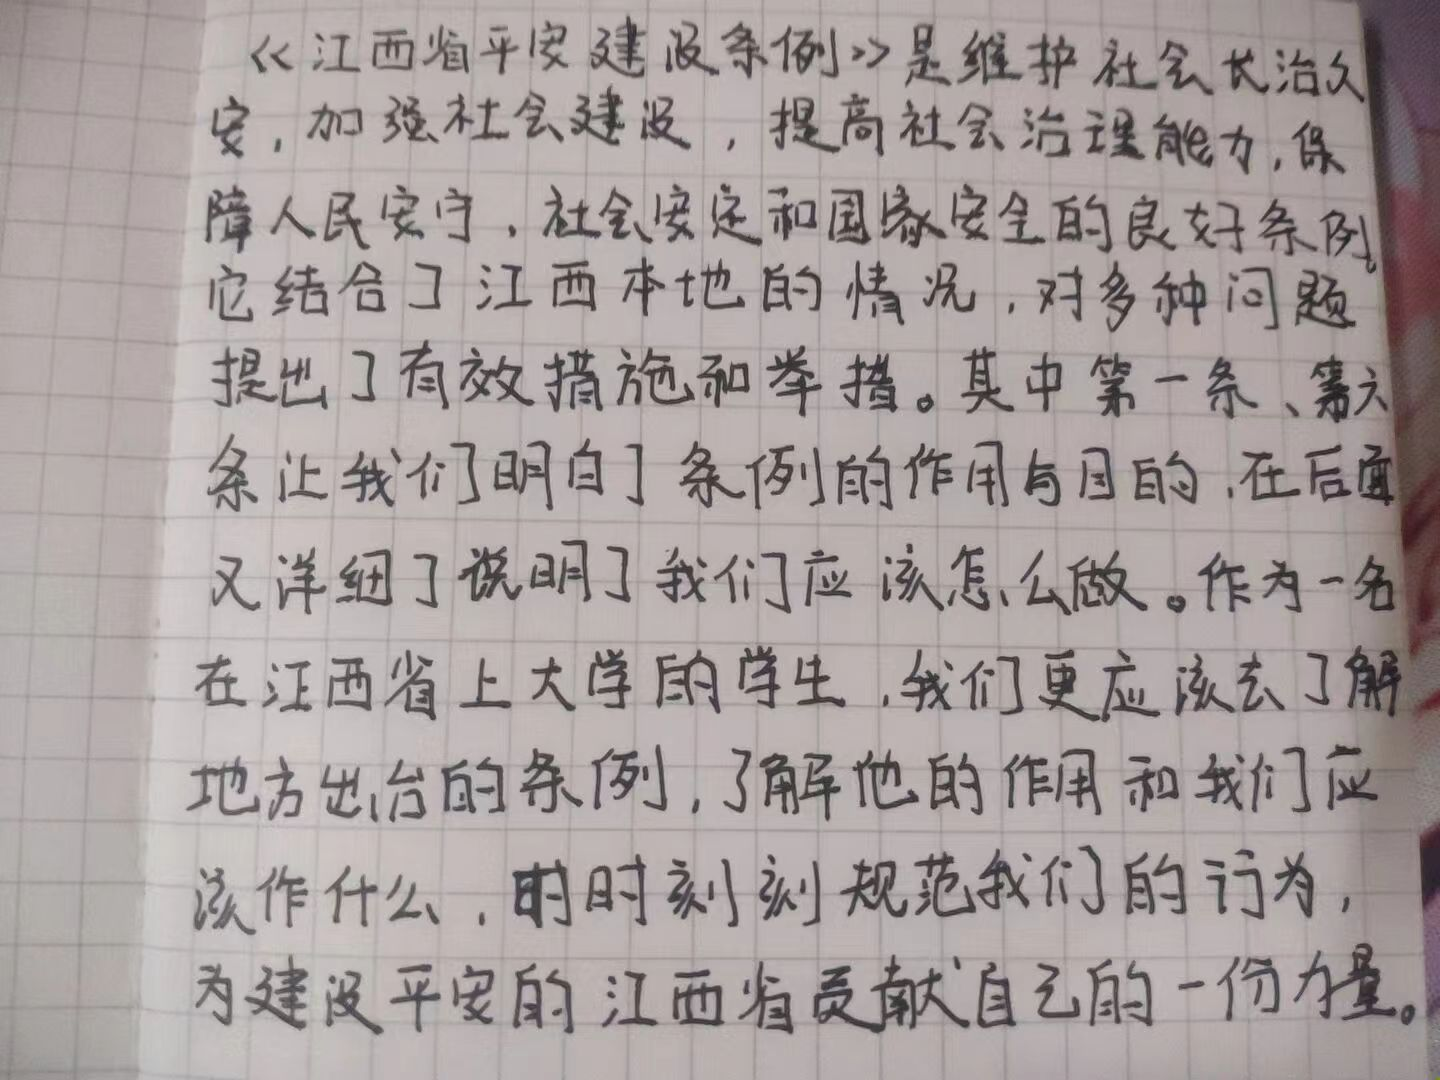 《江西省平安建设条例》是维护社会长治久
安，加强社会建设，提高社会治理能力，保
障人民安宁，社会安定和国家安全的良好条例。
它结合了江西本地的情况，对多种问题
提出了有效措施和举措。其中第一条、第六
条让我们明白了条例的作用与目的，在后面
又详细了说明了我们应该怎么做。作为一名
在江西省上大学的学生，我们更应该去了解
地方出台的条例，了解他的作用和我们应
该作什么，时时刻刻规范我们的行为，
为建设平安的江西省贡献自己的一份力量。